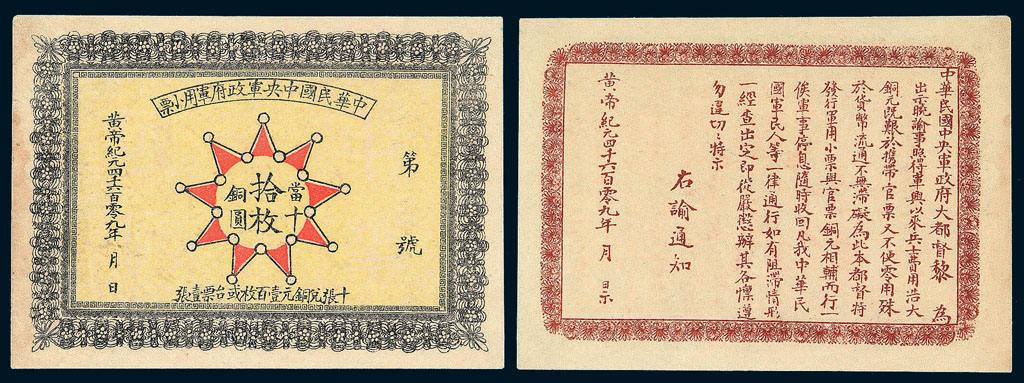 中華民國中央軍政府軍用小票
第 號
當十
拾枚
銅圓
黃帝紀元四千六百零九年 月 日
十張兌銅元壹百枚或台票壹張
中華民國中央軍政府大都督黎 為
出示曉諭事照得軍興以來兵士費用浩大
銅元既艱於攜帶官票又不便零用殊
於貨幣流通不無滯礙為此本都督特
發行軍用小票與官票銅元相輔而行一
俟軍事停息隨時收回凡我中華民
國軍民人等一律通行如有阻滯情形
一經查出定即從嚴懲辦其各懍遵
勿違切切特示
右諭通知
黃帝紀元四千六百零九年 月 日示